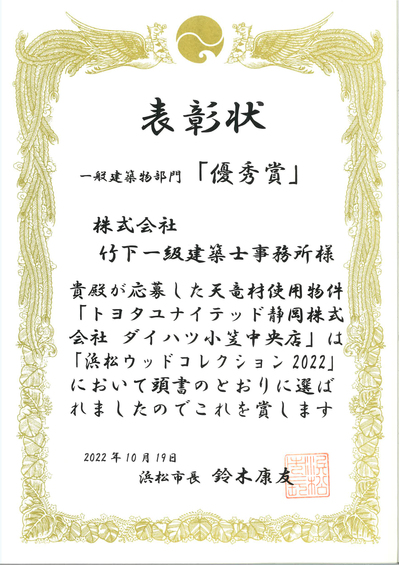 表彰状
一般建築物部門「優秀賞」
株式会社
竹下一級建築士事務所様
貴殿が応募した天竜材使用物件
「トヨタユナイテッド静岡株式
会社 ダイハツ小笠中央店」は
「浜松ウッドコレクション2022」
において頭書のとおりに選ば
れましたのでこれを賞します
2022年10月19日
浜松市長 鈴木康友